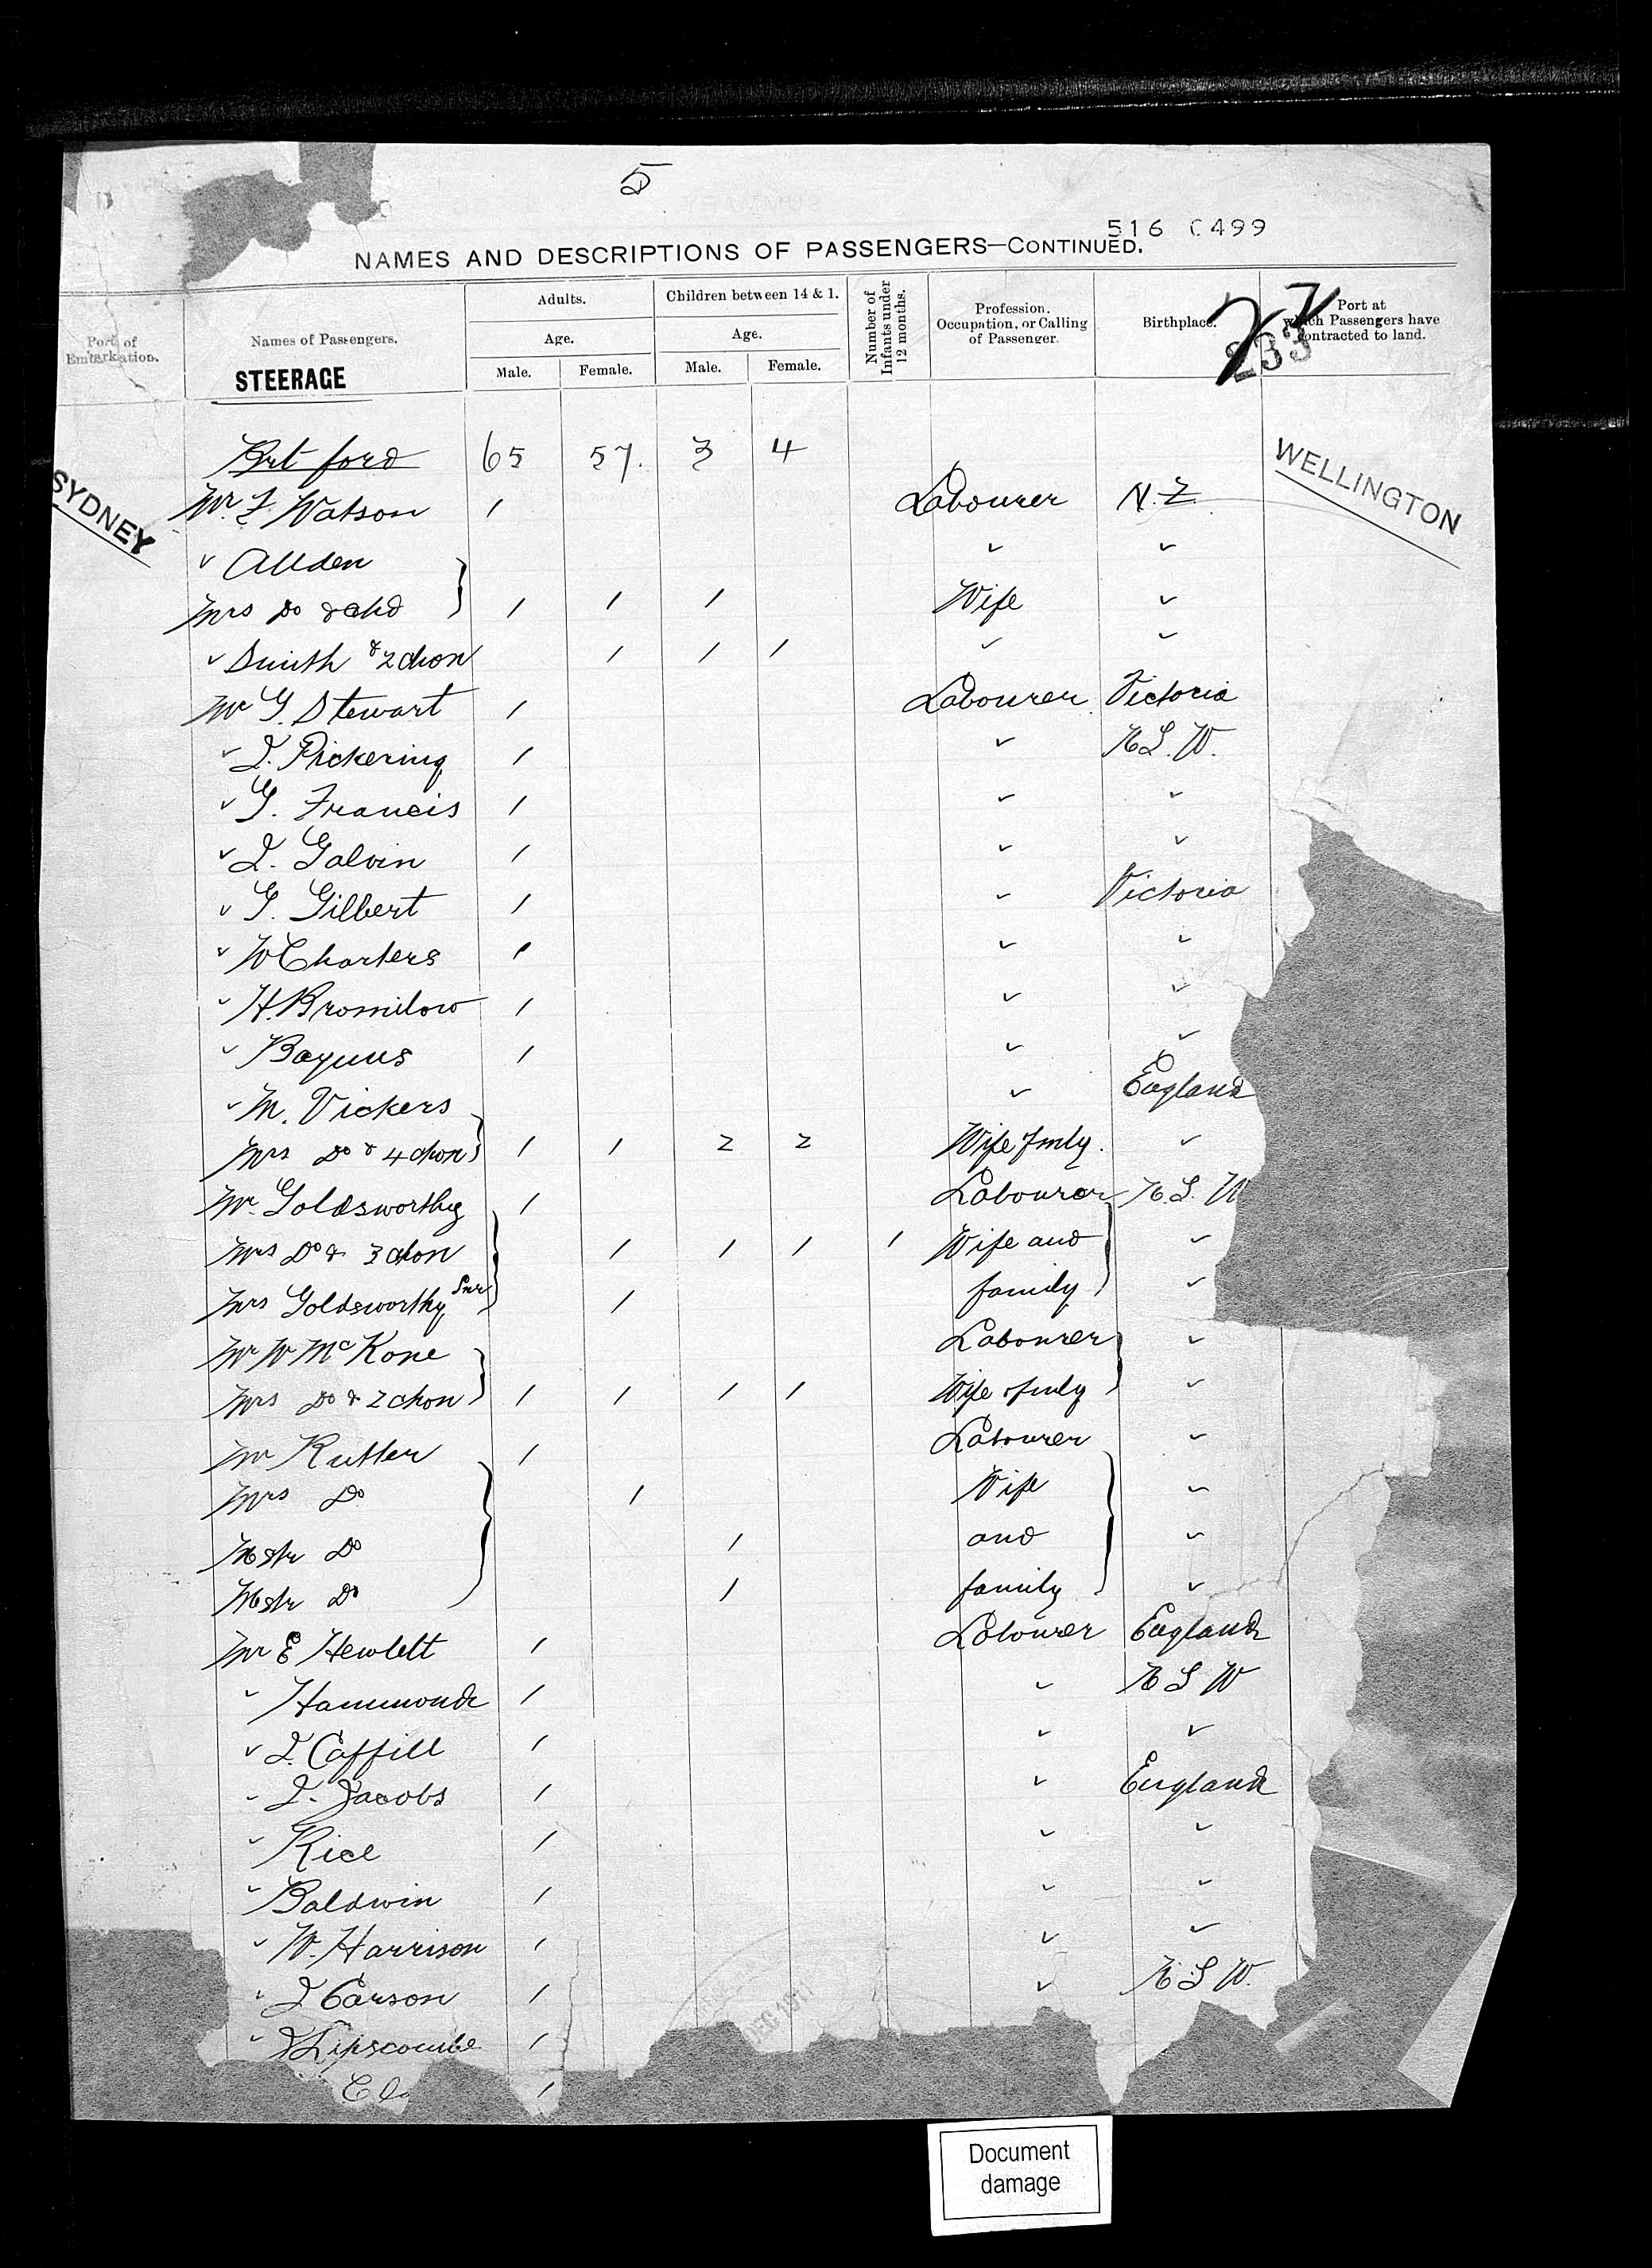 5
516 0499
NAMES AND DESCRIPTIONS OF PASSENGERS—CONTINUED.
Port of Embarkation. Names of Passengers. Adults. Age. Male. Female. Children between 14 & 1. Age. Male. Female. Number of Infants under 12 months. Profession. Occupation, or Calling of Passenger. Birthplace. Port at which Passengers have contracted to land.
233
STEERAGE
SYDNEY
WELLINGTON
Brt ford 65 57. 3 4
Mr F Watson 1 Labourer N.Z
" Allden " "
Mrs Do & chd } 1 1 1 Wife "
" Smith & 2 chon 1 1 1 " "
Mr G. Stewart 1 Labourer Victoria
" J. Pickering 1 " N.S.W.
" G. Francis 1 " "
" J. Galvin 1 " "
" G. Gilbert 1 " Victoria
" W Charters 1 " "
" H. Bromilow 1 " "
" 1 " "
" M. Vickers " England
Mrs Do & 4 chon } 1 1 2 2 Wife fmly. "
Mr Goldsworthy 1 Labourer N.S.W
Mrs Do & 3 chon 1 1 1 1 Wife and "
Mrs Goldsworthy Snr } 1 family } "
Mr W McKone Labourer "
Mrs Do & 2 chon } 1 1 1 1 Wife & fmly } "
Mr Rutter 1 Labourer "
Mrs Do 1 Wife "
Mstr Do 1 and "
Mstr Do } 1 family } "
Mr E Hewlett 1 Labourer England
" Hammond 1 " N S W
" J. Caffill 1 " "
" J. Jacobs 1 " England
" Rice 1 " "
" Baldwin 1 " "
" W. Harrison 1 " "
" J Carson 1 " N.S.W.
" J Lipscombe 1
1
Document
damage